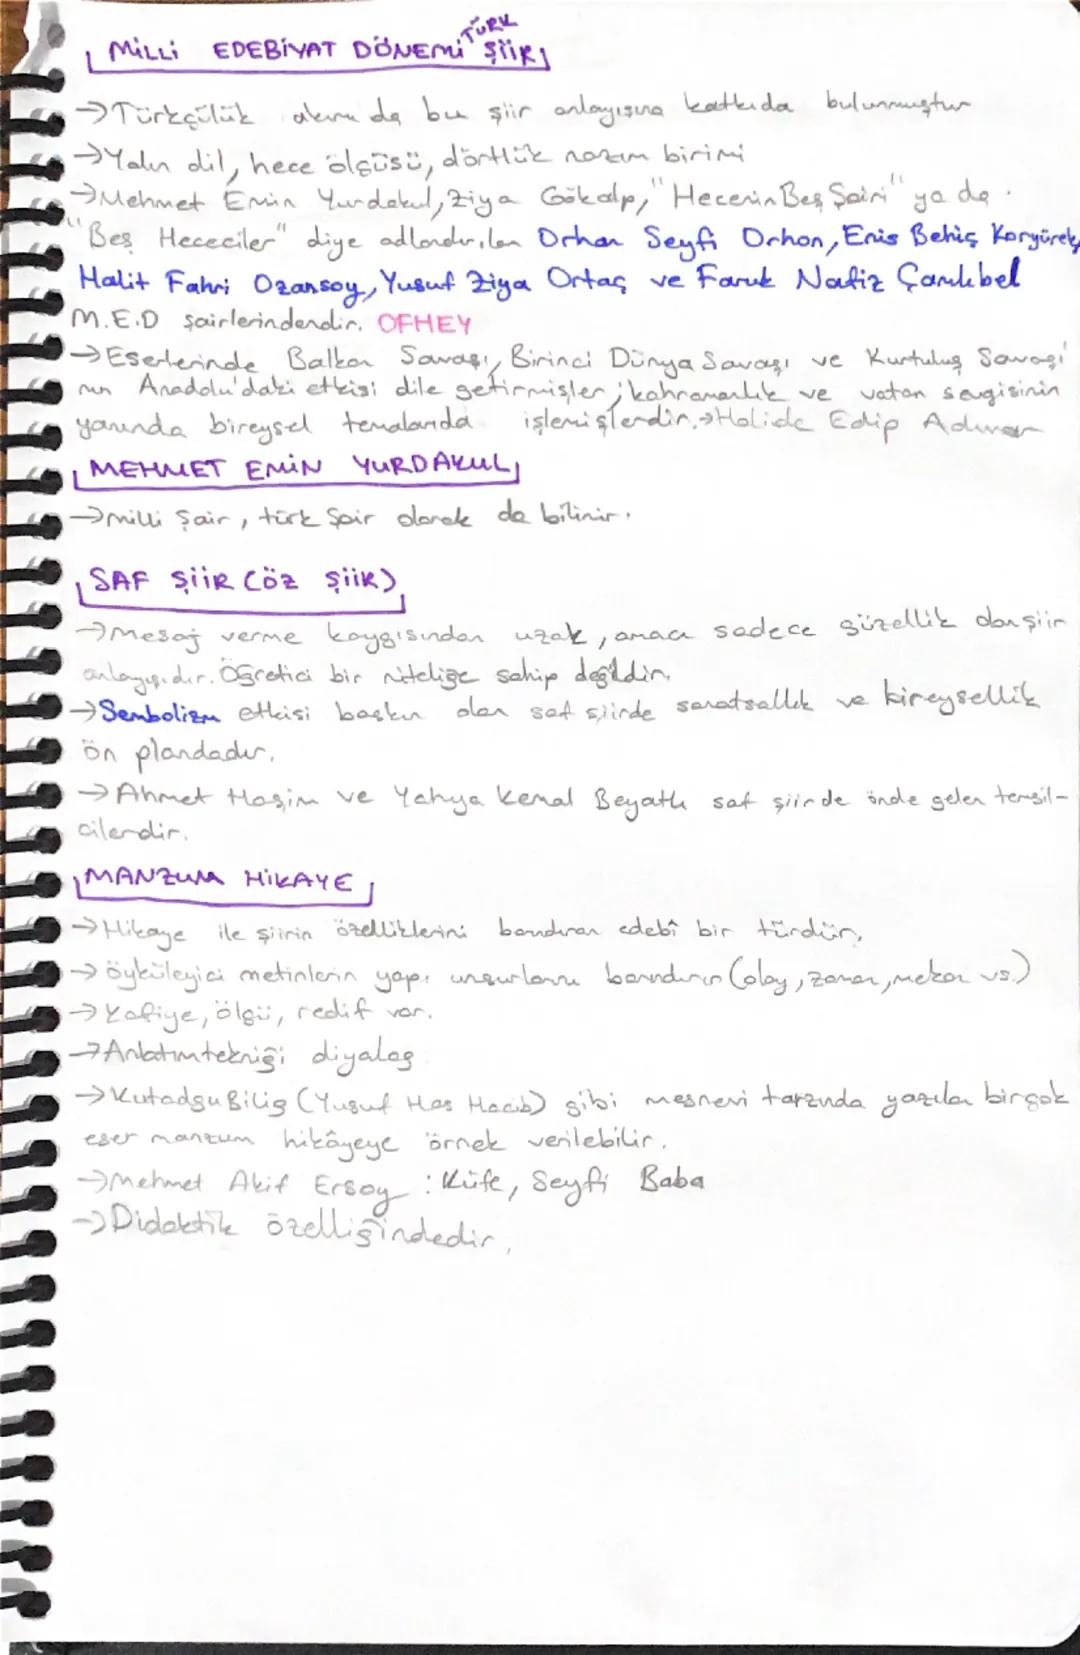 MİLLİ EDEBİYAT DÖNEMİ TÜRK ŞİİRİ
→Türkçülük akımı da bu şiir anlayışına katkıda bulunmuştur
→Yalın dil, hece ölçüsü, dörtlük nazım birimi
→Mehmet Emin Yurdakul, Ziya Gökalp, "Hecenin Beş Şairi" ya da
"Beş Hececiler" diye adlandırılan Orhan Seyfi Orhon, Enis Behiç Koryürek,
Halit Fahri Ozansoy, Yusuf Ziya Ortaç ve Faruk Nafiz Çamlıbel
M.E.D şairlerindendir. OFHEY
→Eserlerinde Balkan Savaşı, Birinci Dünya Savaşı ve Kurtuluş Savaşı'
nın Anadolu'daki etkisi dile getirmişler; kahramanlık ve vatan sevgisinin
yanında bireysel temalarıda işlemişlerdir.→Halide Edip Adıvar
MEHMET EMİN YURDAKUL
→Milli Şair, türk Şair olarak da bilinir.
SAF ŞİİR (ÖZ ŞİİR)
→Mesaj verme kaygısından uzak, amacı sadece güzellik olan şiir
anlayışıdır. Öğretici bir niteliğe sahip değildir.
→Sembolizm etkisi baskın olan saf şiirde sanatsallık ve bireysellik
ön plandadır.
→Ahmet Haşim ve Yahya Kemal Beyatlı saf şiirde önde gelen temsil-
cilerdir.
MANZUM HİKAYE
→Hikaye ile şiirin özelliklerini barındıran edebî bir türdür.
→öyküleyici metinlerin yapı unsurlarını barındırır (olay, zaman, mekan vs.)
→Kafiye, ölçü, redif var.
→Anlatım tekniği diyalog
→Kutadgu Bilig (Yusuf Has Hacib) gibi mesnevi tarzında yazılan birçok
eser manzum hikâyeye örnek verilebilir.
→Mehmet Akif Ersoy : Küfe, Seyfi Baba
→Didaktik özelliğindedir.